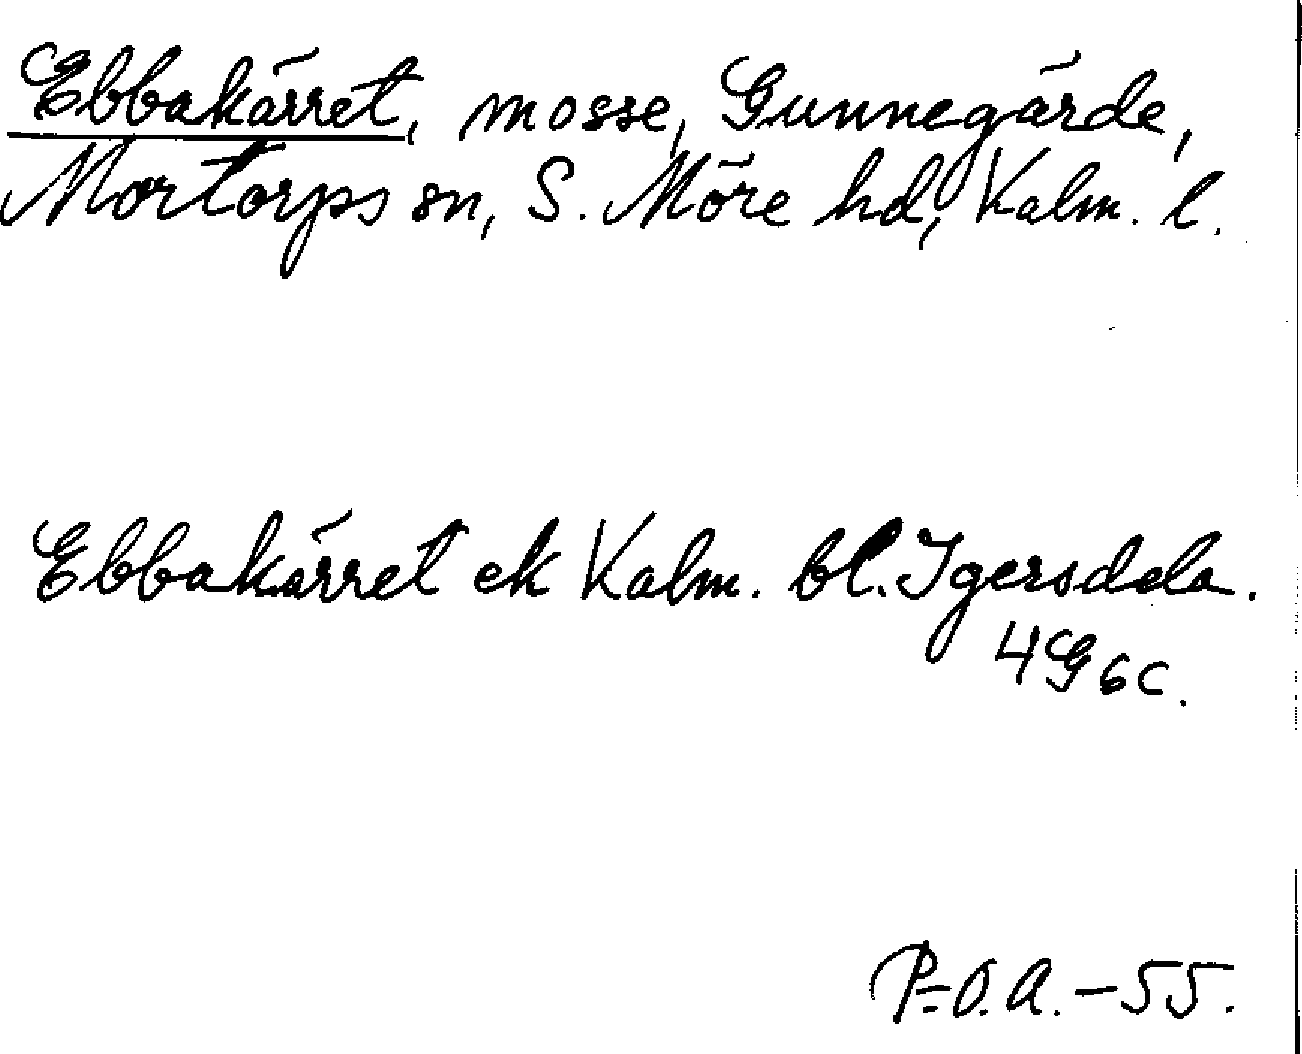 Ebbakärret, mosse, Gunnegärde,
Mortorps sn, S. Möre hd, Kalm. l.
Ebbakärret ek Kalm. bl. Igersdela.
4G6c.
P=O.A.-55.